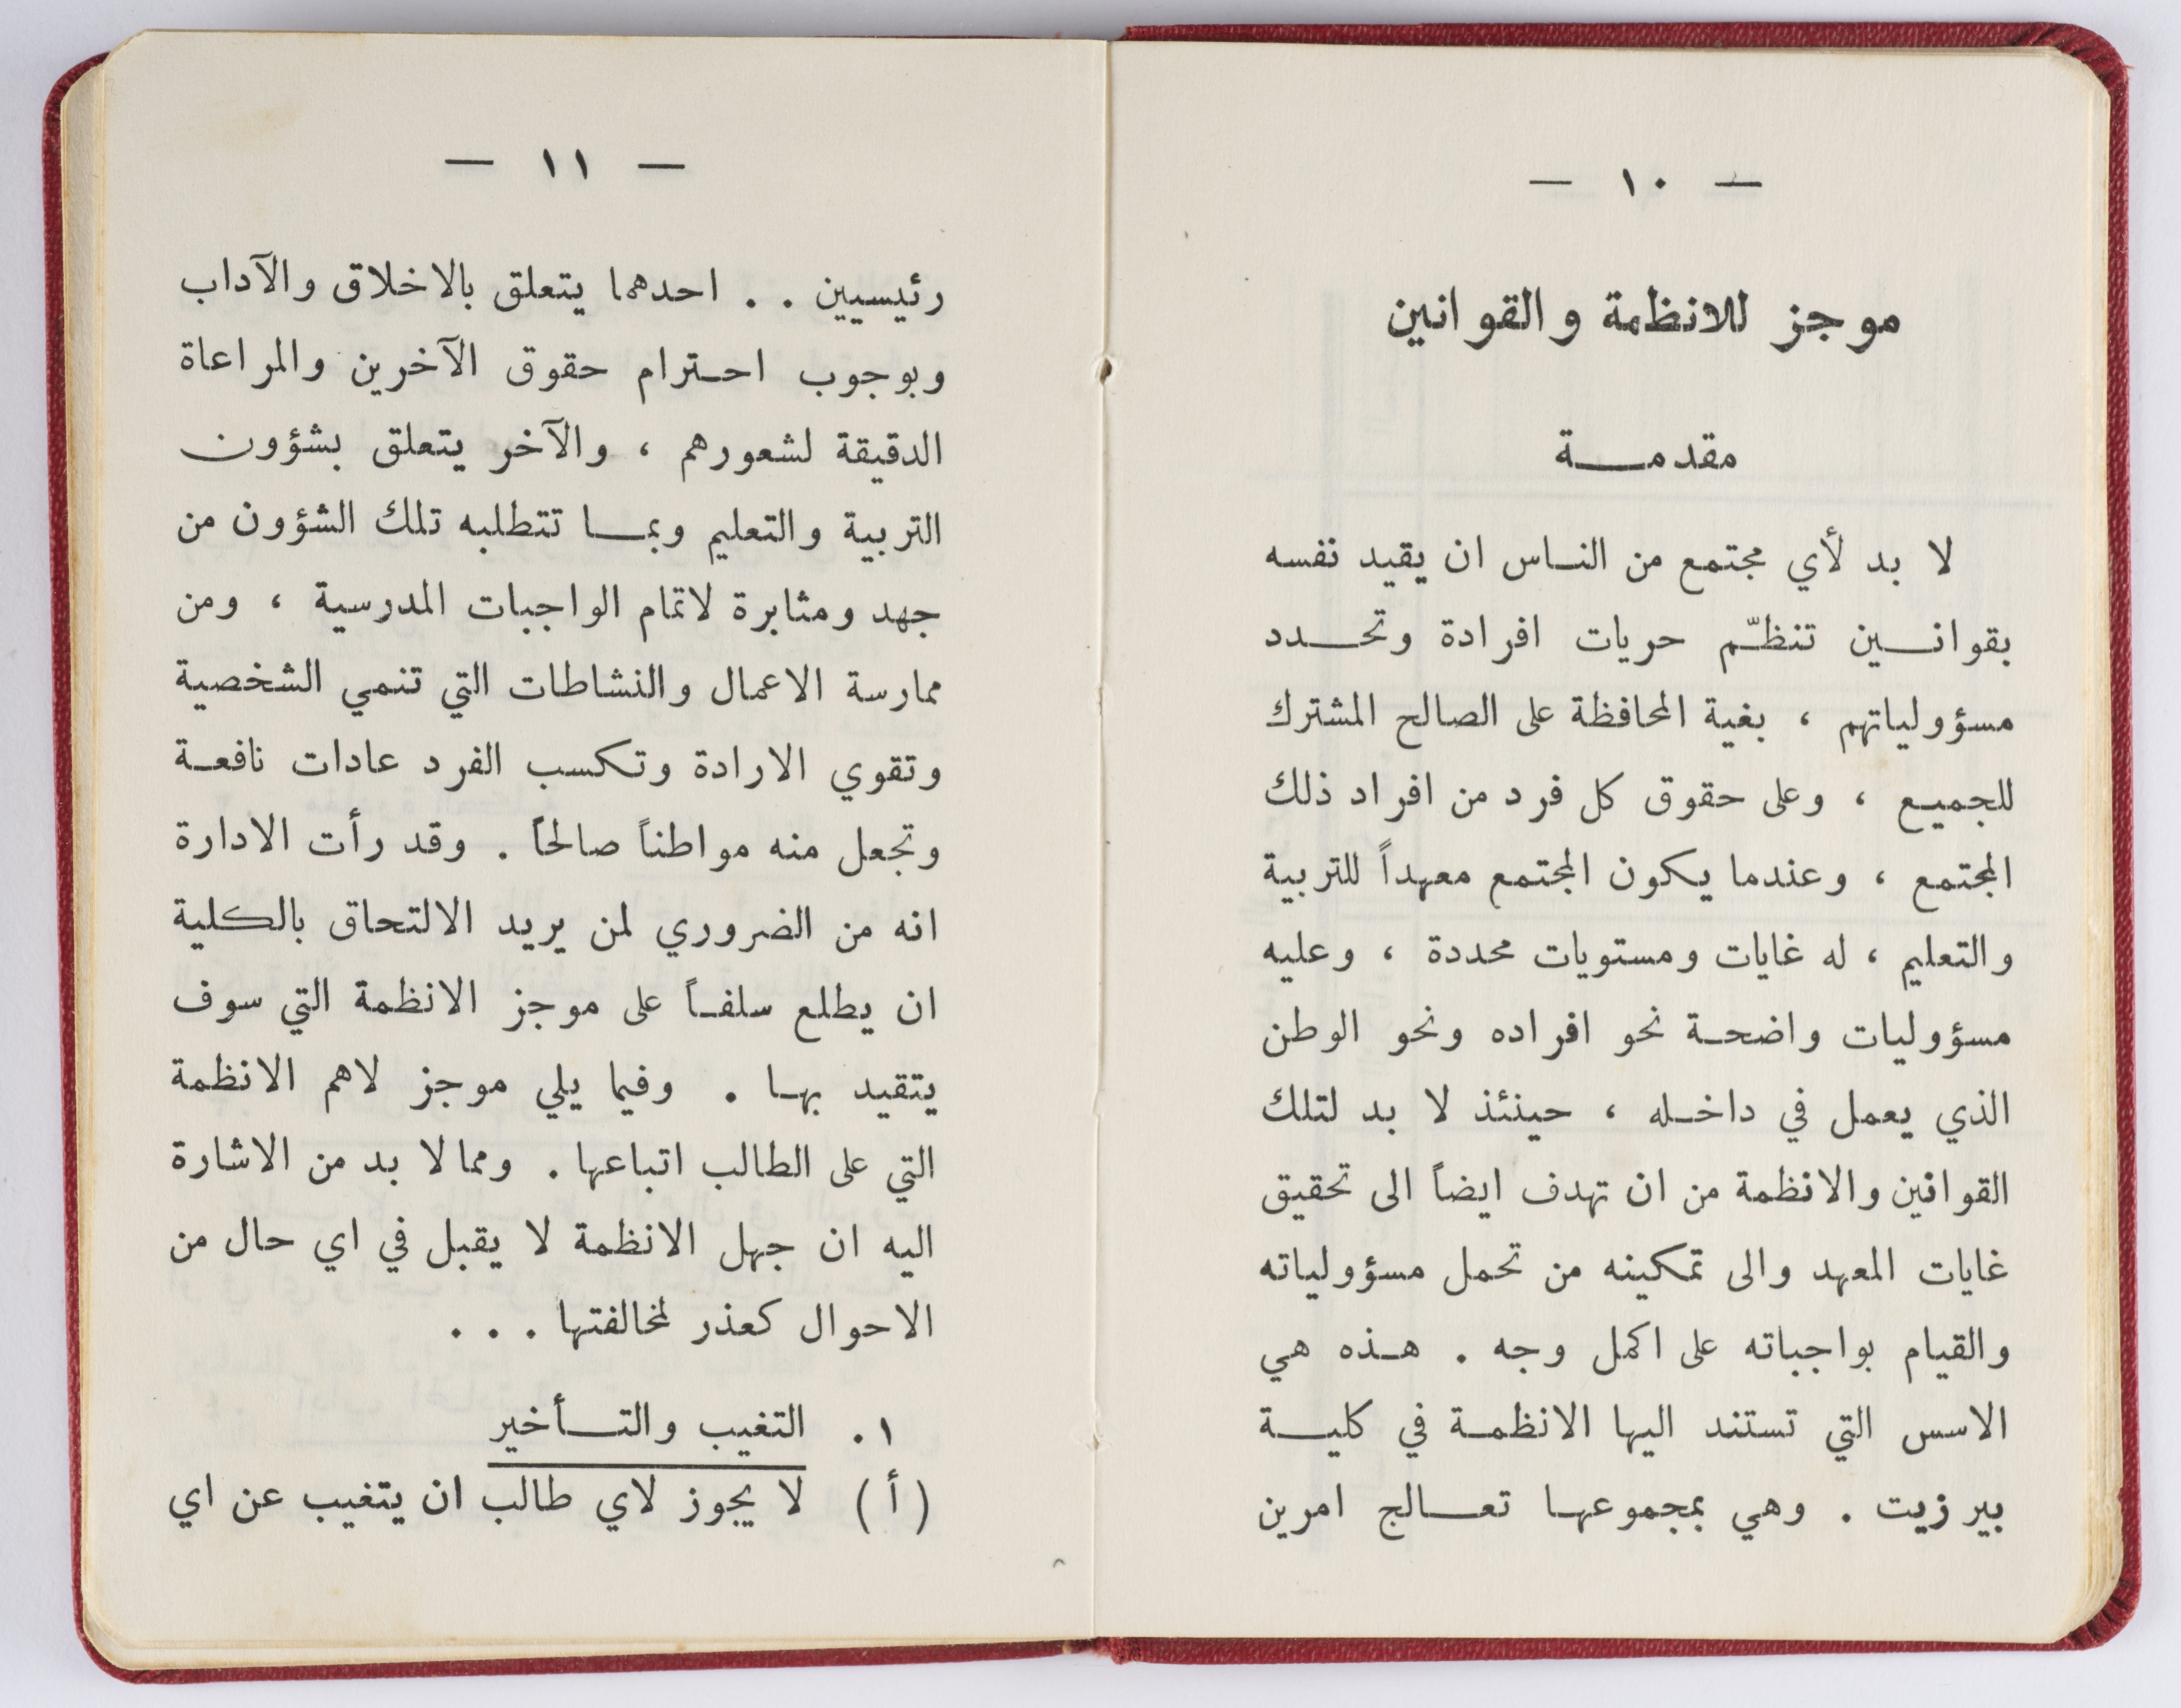 — ١٠ —
موجز للانظمة والقوانين
مقدمـــة
لا بد لأي مجتمع من النـاس ان يقيد نفسه
بقوانــين تنظّـم حريات افرادة وتحــدد
مسؤولياتهم ، بغية المحافظة على الصالح المشترك
للجميـع ، وعلى حقوق كل فرد من افراد ذلك
المجتمع ، وعندما يكون المجتمع معهداً للتربية
والتعليم ، له غايات ومستويات محددة ، وعليه
مسؤوليات واضحـة نحو افراده ونحو الوطن
الذي يعمل في داخـله ، حينئذ لا بد لتلك
القوانين والانظمة من ان تهدف ايضاً الى تحقيق
غايات المعهد والى تمكينه من تحمل مسؤولياته
والقيام بواجباته على اكمل وجه . هـذه هي
الاسس التي تستند اليها الانظمـة في كليــة
بير زيت . وهي بمجموعهـا تعـــالج امرين
— ١١ —
رئيسيين . . احدهما يتعلق بالاخلاق والآداب
وبوجوب احـترام حقوق الآخرين والمراعاة
الدقيقة لشعورهم ، والآخر يتعلق بشؤون
التربية والتعليم وبمــا تتطلبه تلك الشؤون من
جهد ومثابرة لاتمام الواجبات المدرسية ، ومن
ممارسة الاعمال والنشاطات التي تنمي الشخصية
وتقوي الارادة وتكسب الفرد عادات نافعـة
وتجعل منه مواطناً صالحاً . وقد رأت الادارة
انه من الضروري لمن يريد الالتحاق بالكلية
ان يطلع سلفـاً على موجز الانظمة التي سوف
يتقيد بهـا . وفيما يلي موجز لاهم الانظمة
التي على الطالب اتباعها . ومما لا بد من الاشارة
اليه ان جهل الانظمة لا يقبل في اي حال من
الاحوال كعذر لمخالفتها . . .
١ . التغيب والتــأخير
(أ) لا يجوز لاي طالب ان يتغيب عن اي